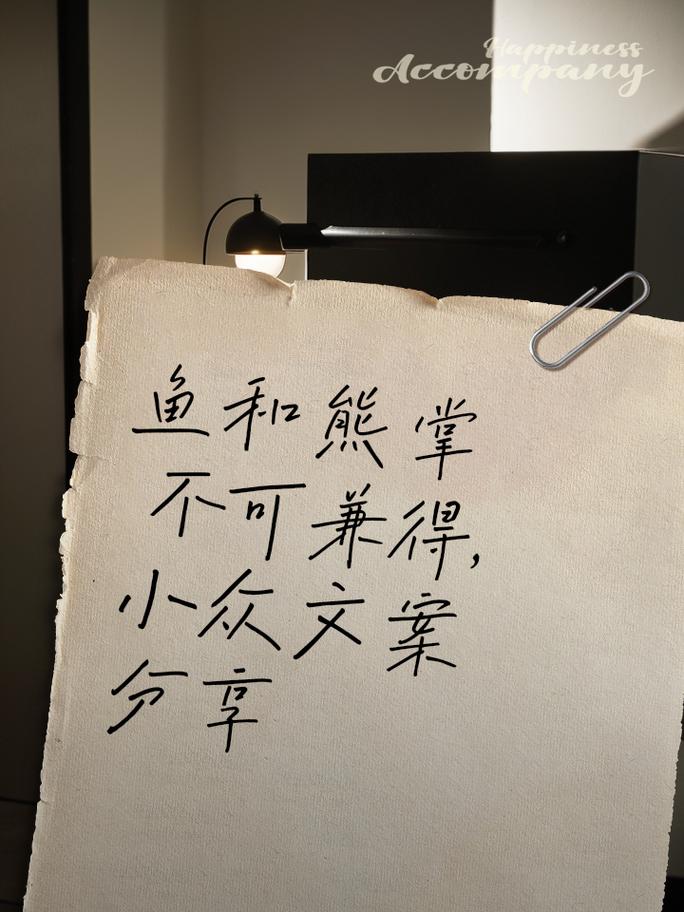 Happiness
Accompany
鱼和熊掌
不可兼得,
小众文案
分享